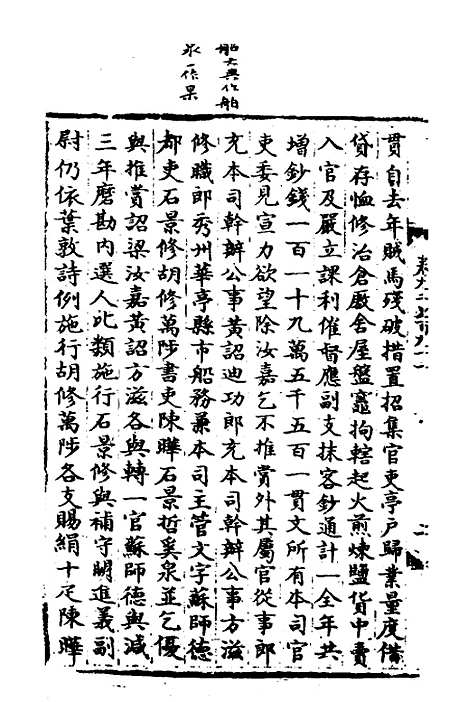 船大典作舶
永一作果
貫自去年賊馬殘破措置招集官吏亭戶歸業量度借
貸存恤修治倉廒舍屋盤竈拘轄起火煎煉鹽貨中賣
入官及嚴立課利催督應副支抹客鈔通計一全年共
增鈔錢一百一十九萬五千五百一貫文所有本司官
吏委見宣力欲望除汝嘉乞不推賞外其屬官從事郎
充本司幹辦公事黃詔迪功郎充本司幹辦公事方滋
修職郎秀州華亭縣市船務兼本司主管文字蘇師德
都吏石景修胡修萬陟書吏陳曄石景哲奚泉並乞優
與推賞詔梁汝嘉黃詔方滋各與轉一官蘇師德與減
三年磨勘內選人比類施行石景修與補守闕進義副
尉仍依葉敦詩例施行胡修萬陟各支賜絹十疋陳曄